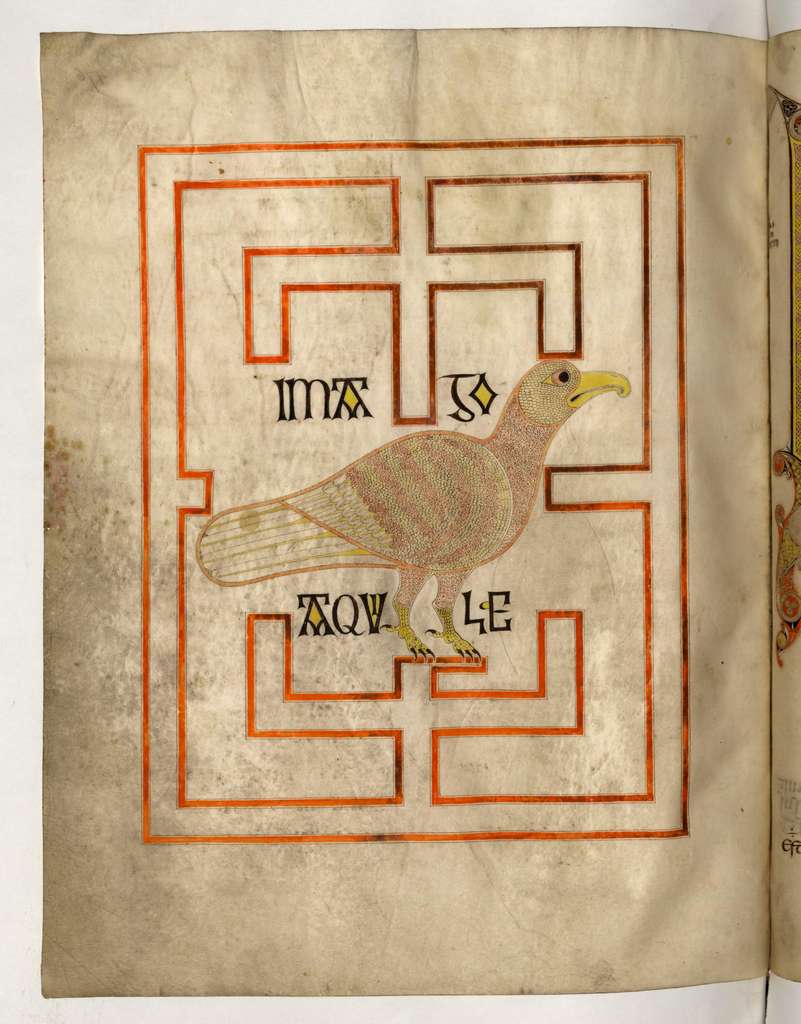 IMAGO
AQVILE